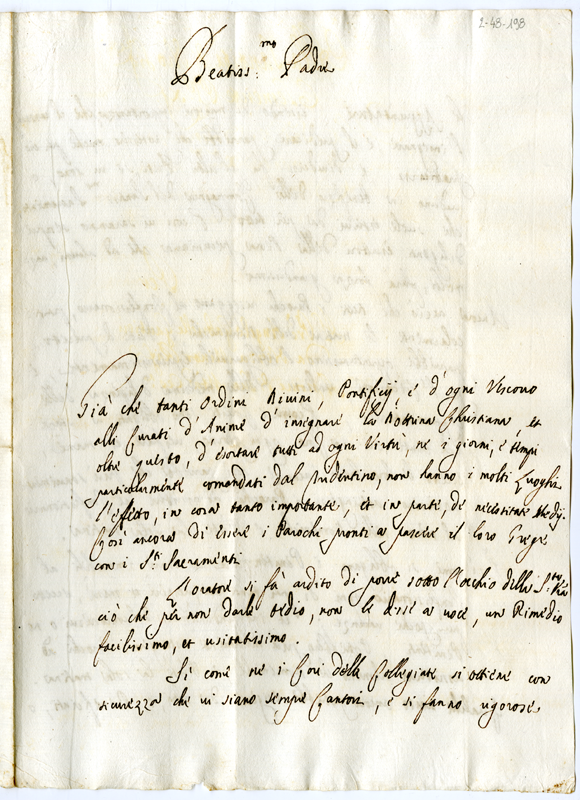 2-48-198
Beatiss.mo Padre
Già che tanti Ordini Divini, Pontificij, e d'ogni Vescovo
alli Curati d'Anime d'insegnare la Dottrina Christiana, et
oltre questo, d'esortare tutti ad ogni Virtù, ne i giorni, e tempi
particolarmente comandati dal Tridentino, non hanno i molti luoghi
l'effetto, in cosa tanto importante, et in parte, de necessitate Medij.
Così ancora di essere i Parochi pronti a pascere il loro Grege
con i S.ti Sacramenti
L'oratore si fà ardito di porre sotto l'occhio della S.tà V.ra
ciò che per non darle tedio, non le disse a voce, un Rimedio
facilissimo, et usitatissimo.
Si come ne i Cori delle Collegiate si ottiene con
sicurezza che vi siano sempre Cantori, e si fanno rigorose